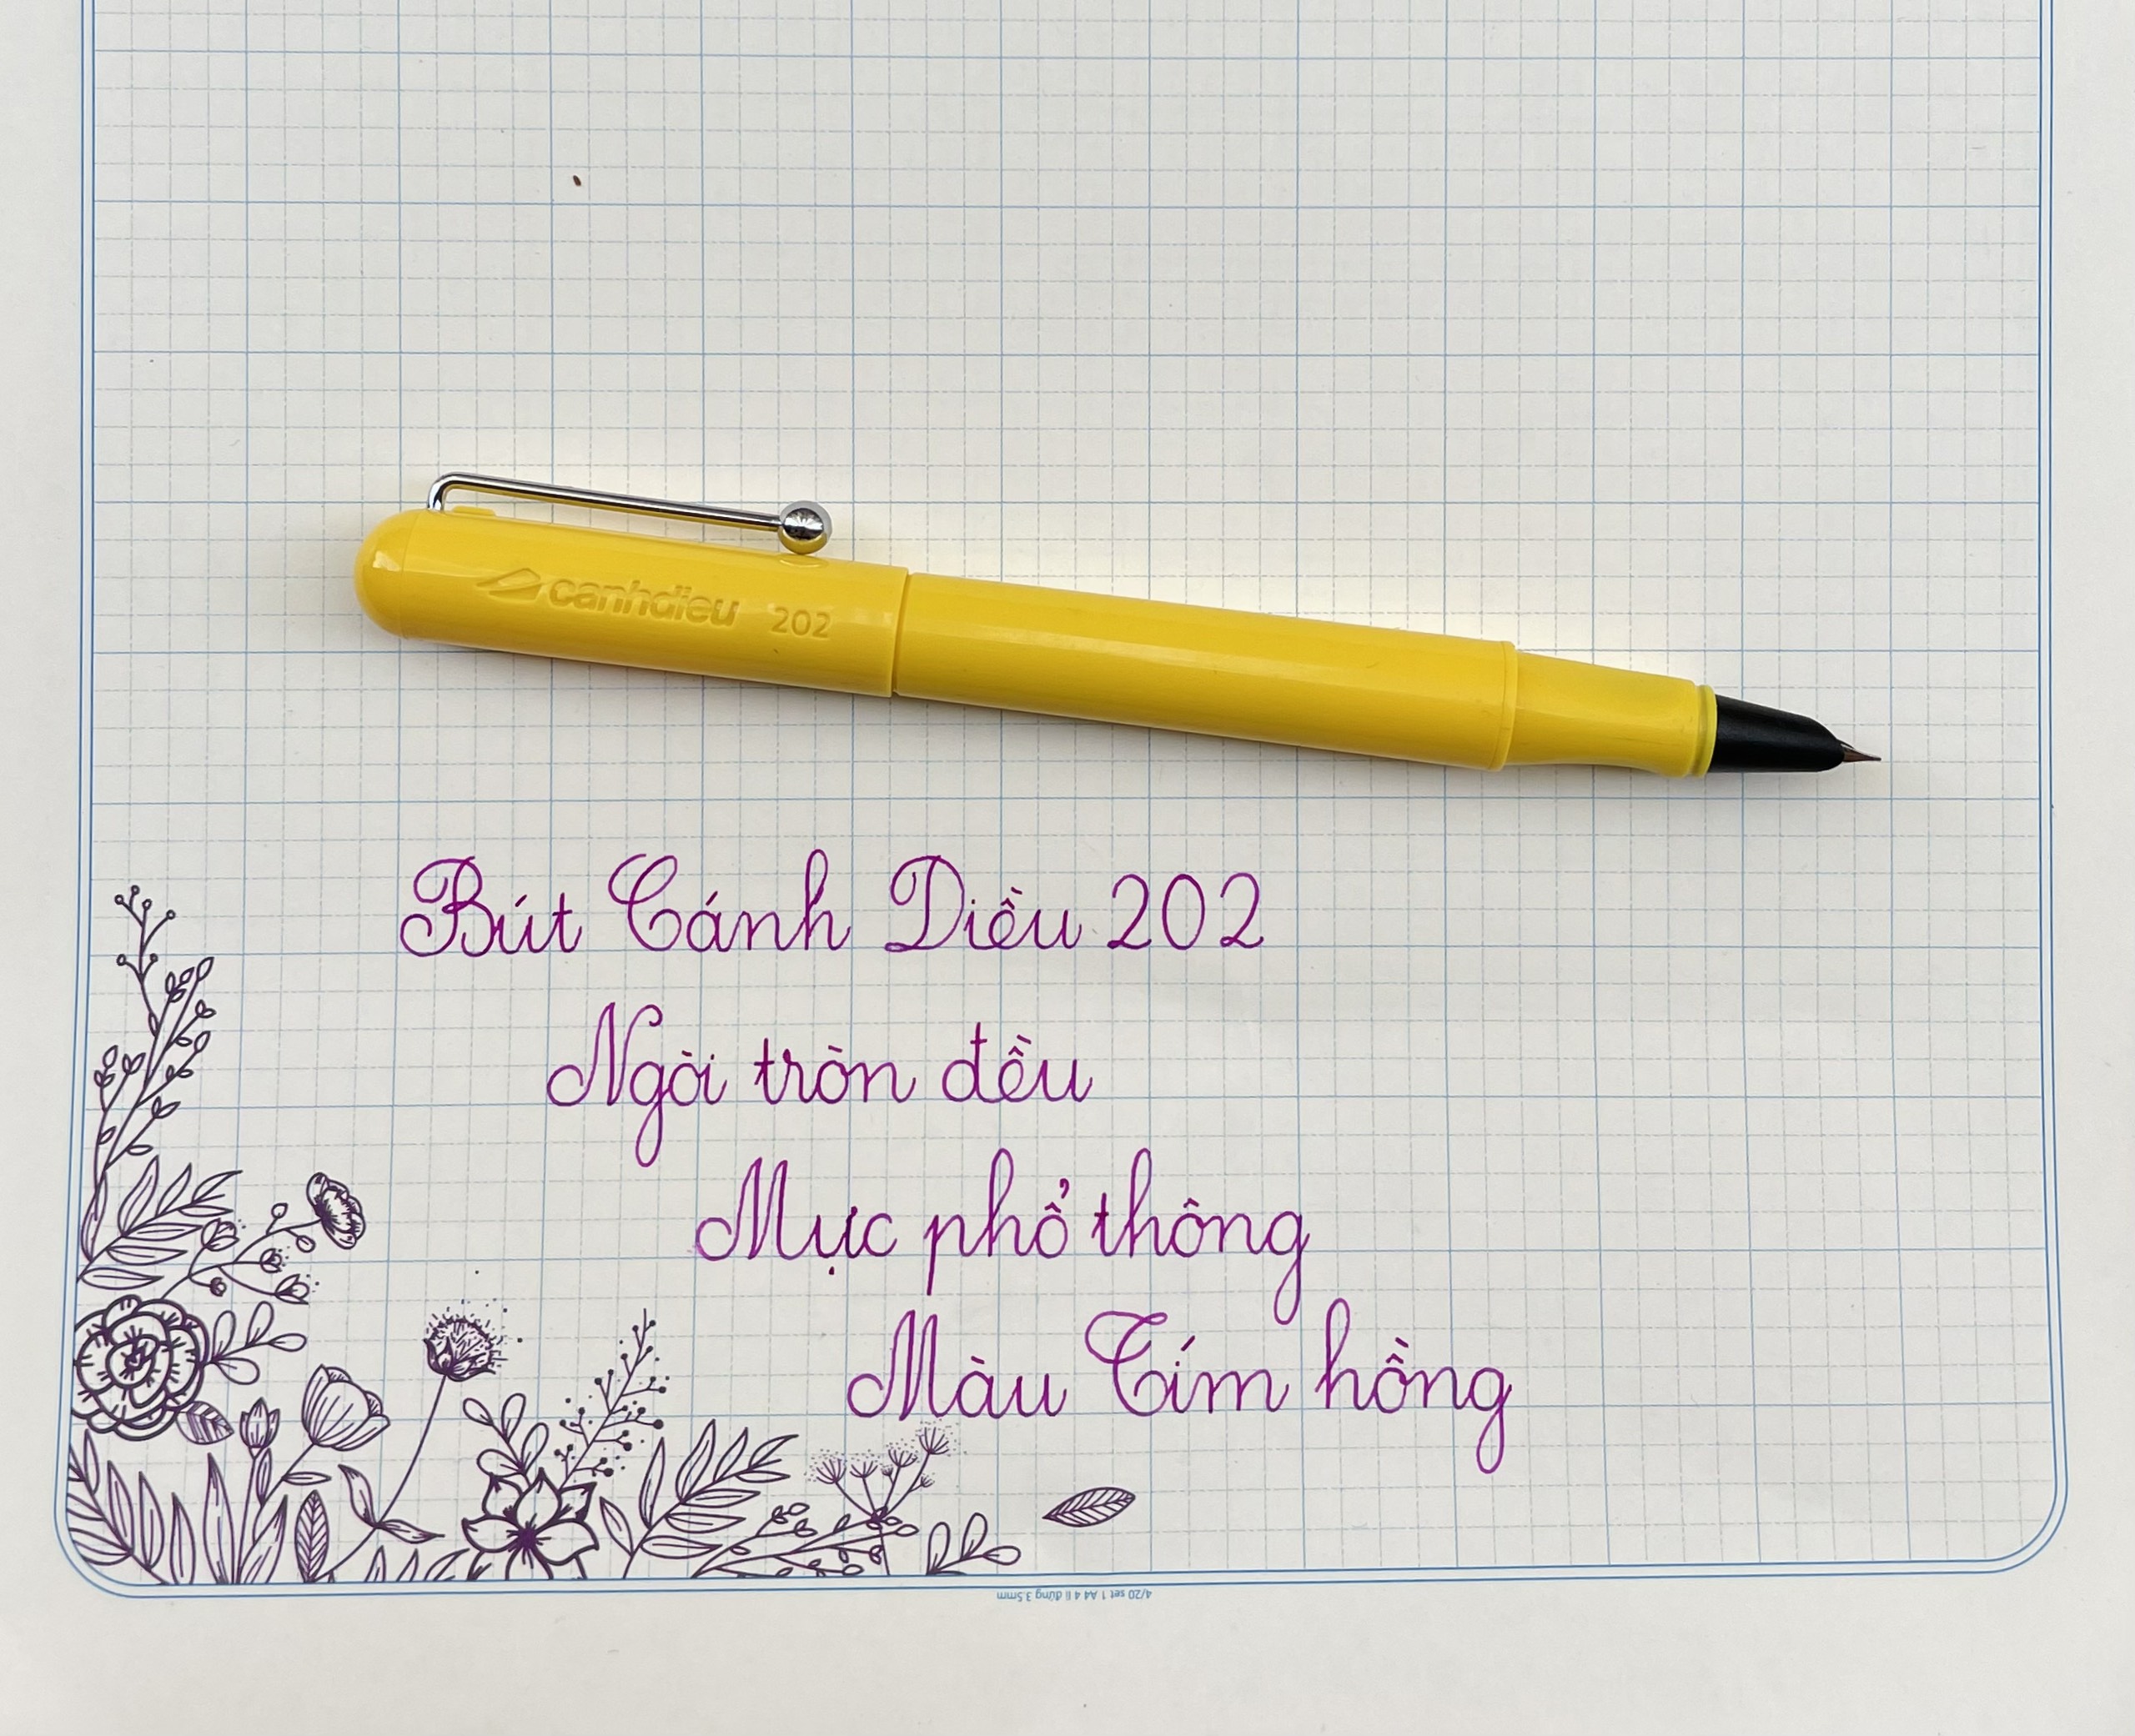 canhdieu 202
Bút Cánh Diều 202
Ngòi tròn đều
Mực phổ thông
Màu Tím hồng
4/20 set 1 A4 4 li đứng 3.5mm